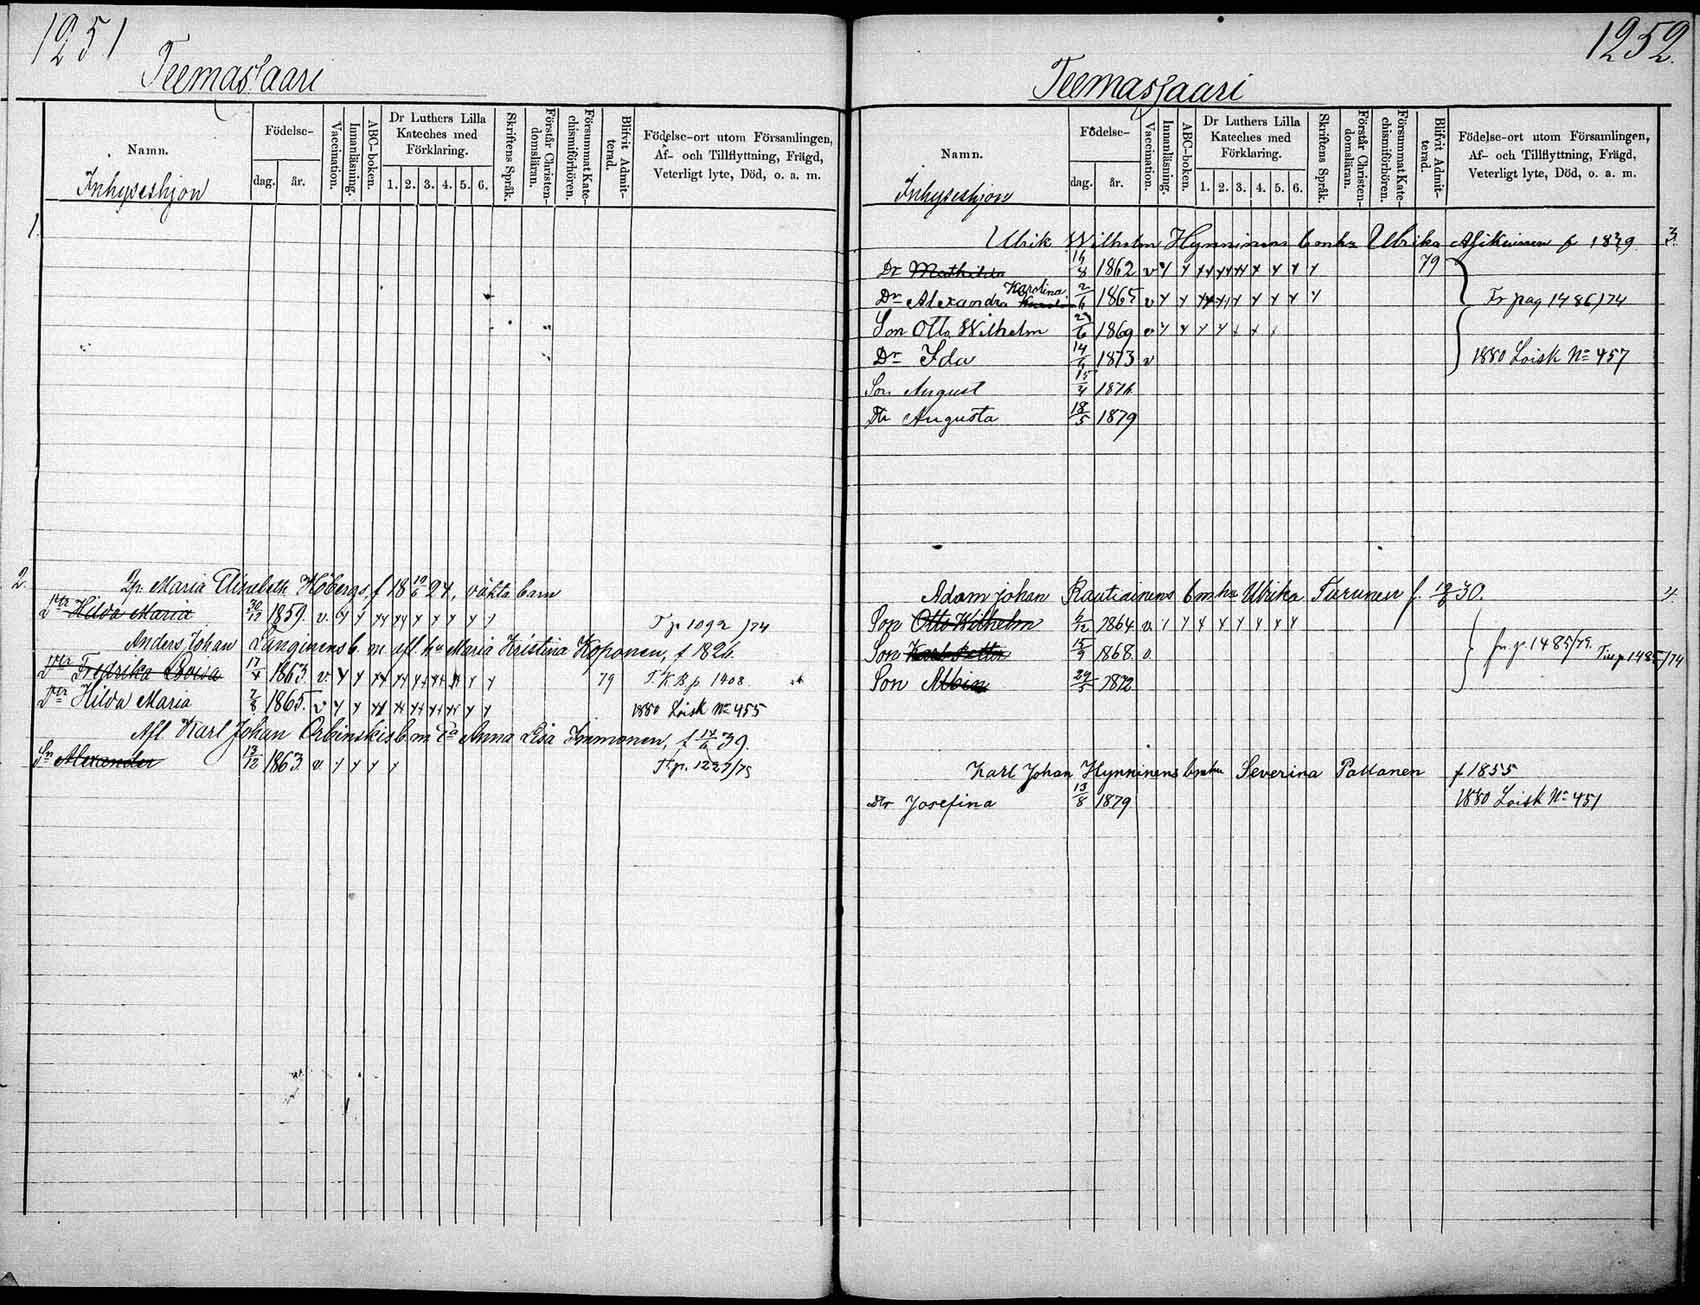 1251
Teemassaari
Namn.
Inhyseshjon
Födelse-
dag.
år.
Vaccination.
Innanläsning.
ABC-boken.
Dr Luthers Lilla
Kateches med
Förklaring.
1. 2. 3. 4. 5. 6.
Skriftens Språk.
Förstår Christen-
domsläran.
Försummat Kate-
chismiförhören.
Blifvit Admit-
terad.
Födelse-ort utom Församlingen,
Af- och Tillflyttning, Frägd,
Veterligt lyte, Död, o. a. m.
1.
2.
Maria Elisabeth Höbergs, f 18 10/6 24, oäkta barn
Dtr Hilda Maria 30/12 1859. v. T p 1092 /74
Anders Johan Länginens b. m. afl. hu Maria Kristina Koponen, f 1826.
Dtr Fredrika Lovisa 17/4 1863. v 79 T. K B p. 1408.
Dtr Hilda Maria 2/8 1865. v 1880 Loisk No 455
Afl Karl Johan Orbinskis b m Anna Lisa Immonen, f 14/6 39.
Sn Alexander 13/12 1863. v T p. 1227/75
1252.
Teemassaari
Namn.
Inhyseshjon
Födelse-
dag.
år.
Vaccination.
Innanläsning.
ABC-boken.
Dr Luthers Lilla
Kateches med
Förklaring.
1. 2. 3. 4. 5. 6.
Skriftens Språk.
Förstår Christen-
domsläran.
Försummat Kate-
chismiförhören.
Blifvit Admit-
terad.
Födelse-ort utom Församlingen,
Af- och Tillflyttning, Frägd,
Veterligt lyte, Död, o. a. m.
Ulrik Wilhelm Hynninens b m hu Ulrika f 1839 3.
Dr Mathilda 16/8 1862 v 79
Karolina
Dr Alexandra 2/6 1865 v Fr pag 1486/74
Son Otto Wilhelm 27/6 1869 v
Dr Ida 14/6 1873 v 1880 Loisk No 457
Son August 15/4 1876
Dtr Augusta 18/5 1879
Adam Johan Rautiainens b m hu Ulrika Turunen f. 12/6 30. 4.
Son Otto Wilhelm 6/12 1864 v.
Son Karl Petter 15/9 1868. v. fr. p. 1485/73. T. p 1485/74
Son Albin 29/5 1872
Karl Johan Hynninens b m hu Severina Pattanen f 1855
Dtr Josefina 13/8 1879 1880 Loisk No 451